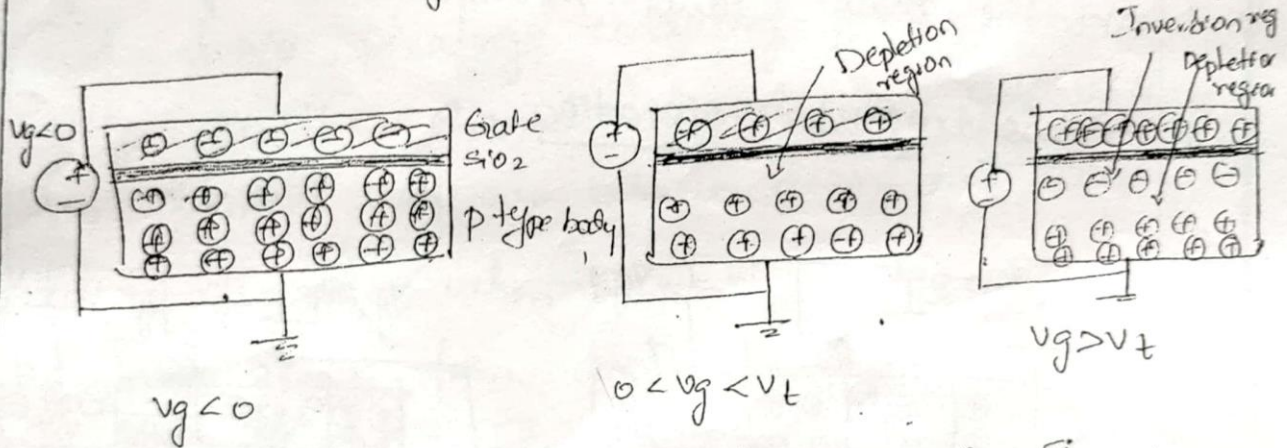 Vg<0
Gate
SiO2
P type body
Vg<0
Depletion
region
0<Vg<Vt
Inversion reg
Depletion
region
Vg>Vt